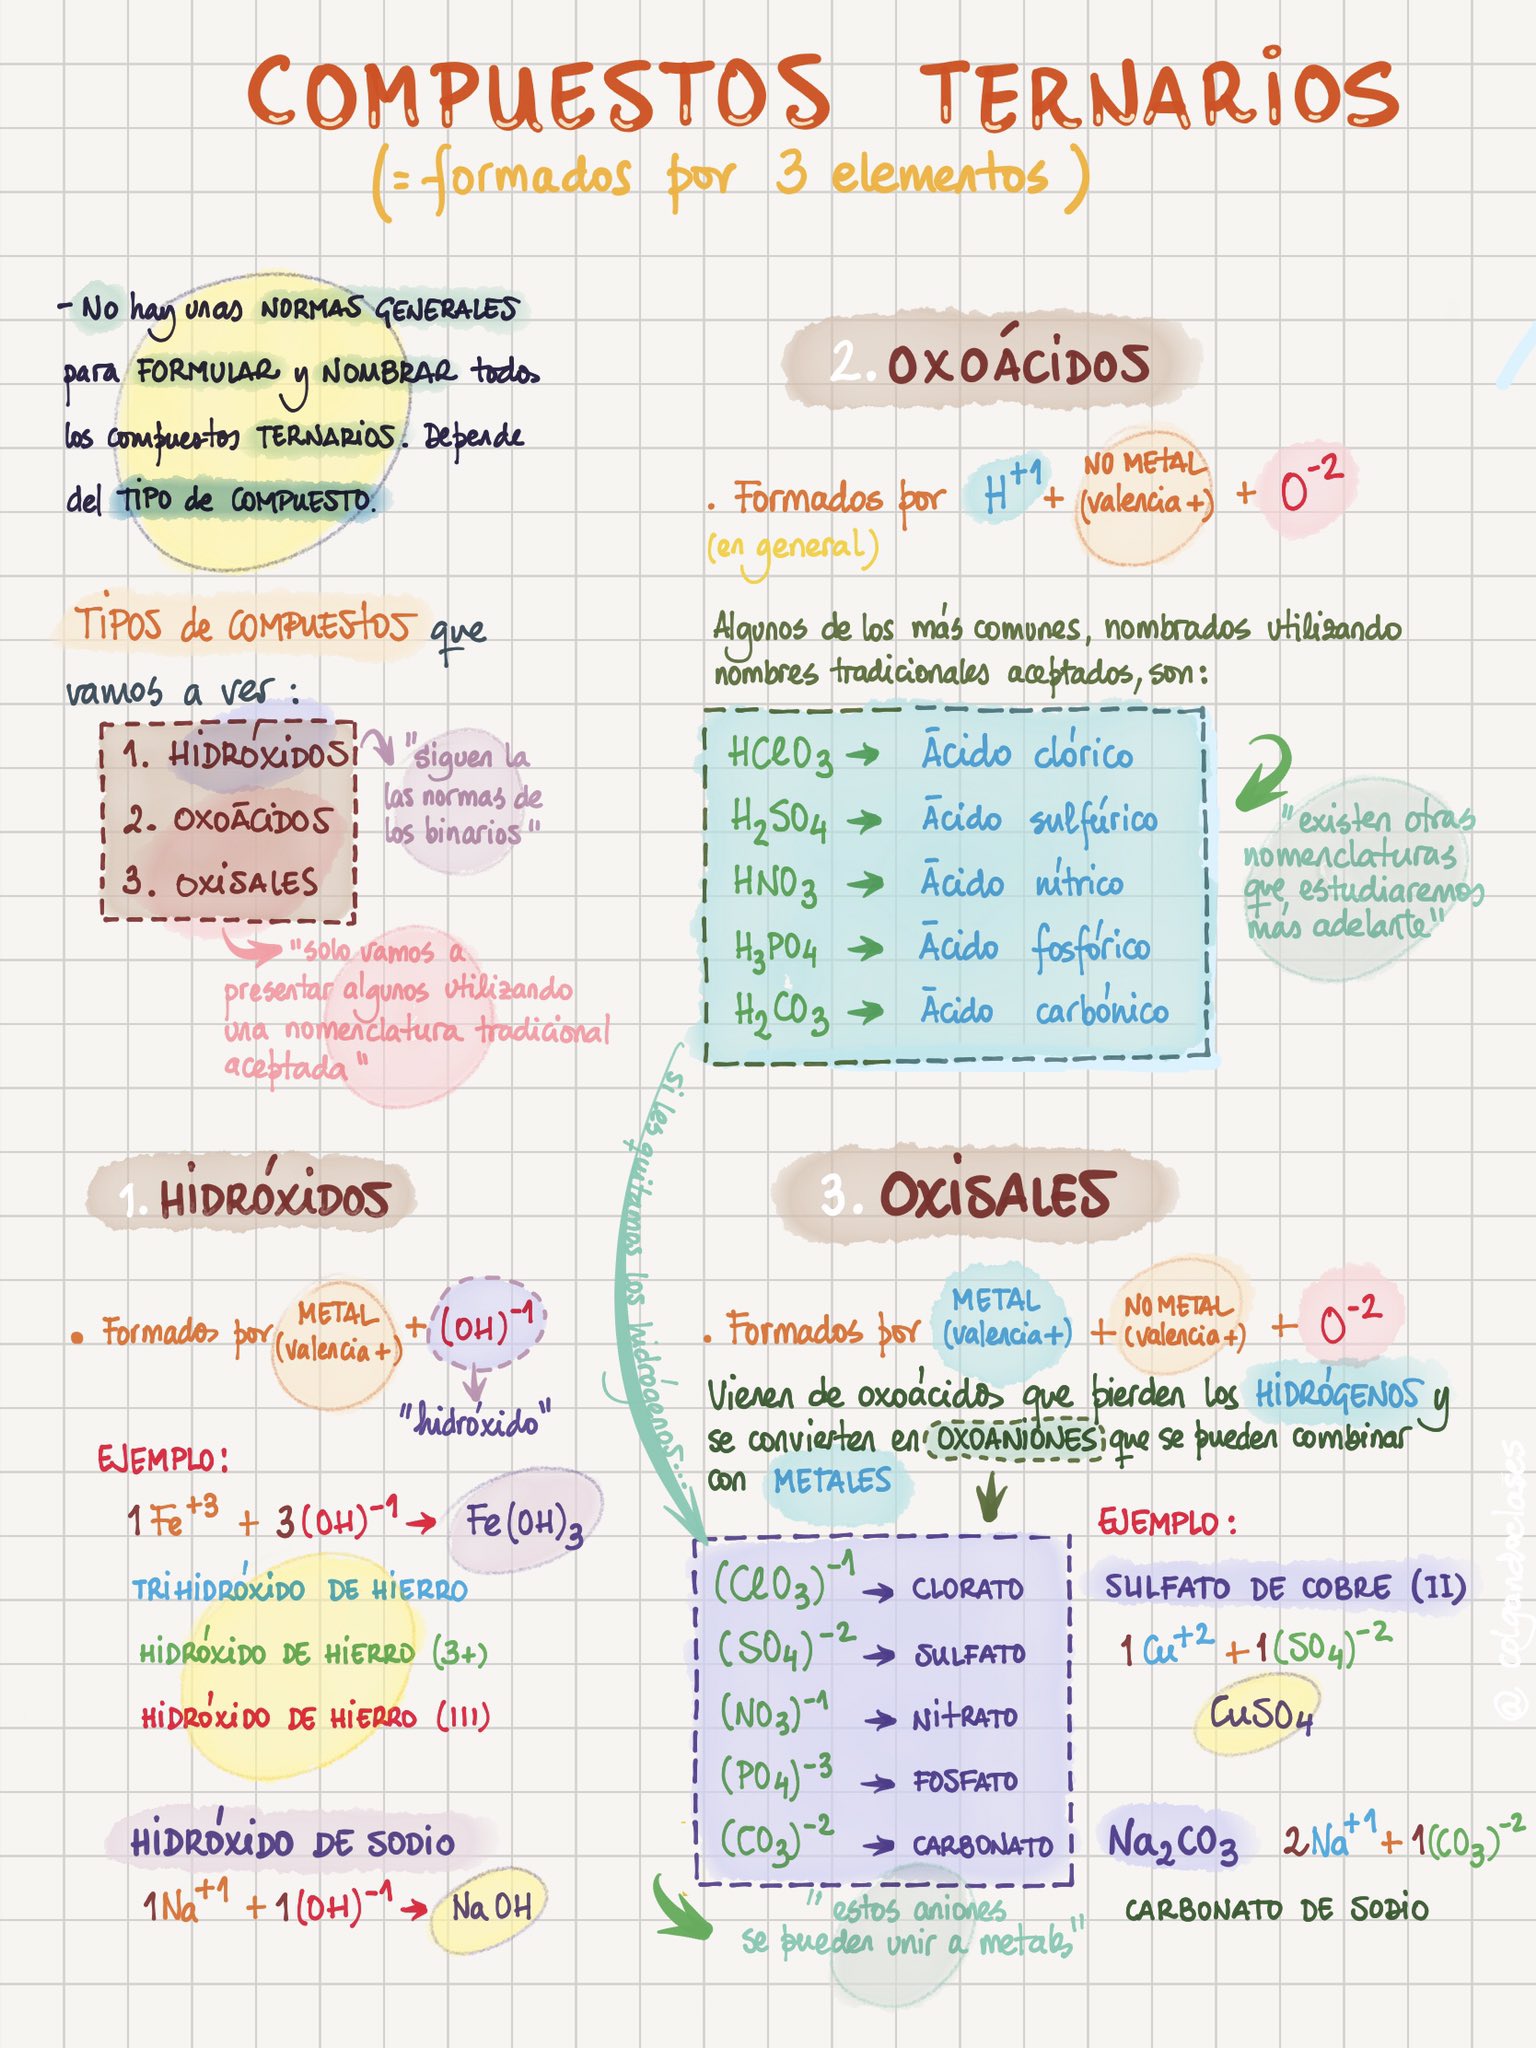 COMPUESTOS TERNARIOS
(= formados por 3 elementos)
- No hay unas NORMAS GENERALES
para FORMULAR y NOMBRAR todos
los compuestos TERNARIOS. Depende
del TIPO de COMPUESTO.
TIPOS de COMPUESTOS que
vamos a ver:
1. HIDRÓXIDOS
2. OXOÁCIDOS
3. OXISALES
"siguen la
las normas de
los binarios"
"solo vamos a
presentar algunos utilizando
una nomenclatura tradicional
aceptada"
1. HIDRÓXIDOS
• Formados por METAL (valencia +) + (OH)⁻¹
"hidróxido"
EJEMPLO:
1 Fe⁺³ + 3 (OH)⁻¹ → Fe(OH)₃
TRIHIDRÓXIDO DE HIERRO
HIDRÓXIDO DE HIERRO (3+)
HIDRÓXIDO DE HIERRO (III)
HIDRÓXIDO DE SODIO
1Na⁺¹ + 1(OH)⁻¹ → NaOH
2. OXOÁCIDOS
. Formados por H⁺¹ + NO METAL (valencia +) + O⁻²
(en general)
Algunos de los más comunes, nombrados utilizando
nombres tradicionales aceptados, son:
HClO₃ → Ácido clórico
H₂SO₄ → Ácido sulfúrico
HNO₃ → Ácido nítrico
H₃PO₄ → Ácido fosfórico
H₂CO₃ → Ácido carbónico
"existen otras
nomenclaturas
que estudiaremos
más adelante"
si les quitamos los hidrógenos...
3. OXISALES
. Formados por METAL (valencia +) + NO METAL (valencia +) + O⁻²
Vienen de oxoácidos que pierden los HIDRÓGENOS y
se convierten en OXOANIONES que se pueden combinar
con METALES
(ClO₃)⁻¹ → CLORATO
(SO₄)⁻² → SULFATO
(NO₃)⁻¹ → NITRATO
(PO₄)⁻³ → FOSFATO
(CO₃)⁻² → CARBONATO
"estos aniones
se pueden unir a metales"
EJEMPLO:
SULFATO DE COBRE (II)
1 Cu⁺² + 1(SO₄)⁻²
CuSO₄
Na₂CO₃ 2Na⁺¹ + 1(CO₃)⁻²
CARBONATO DE SODIO
@colgandoclases